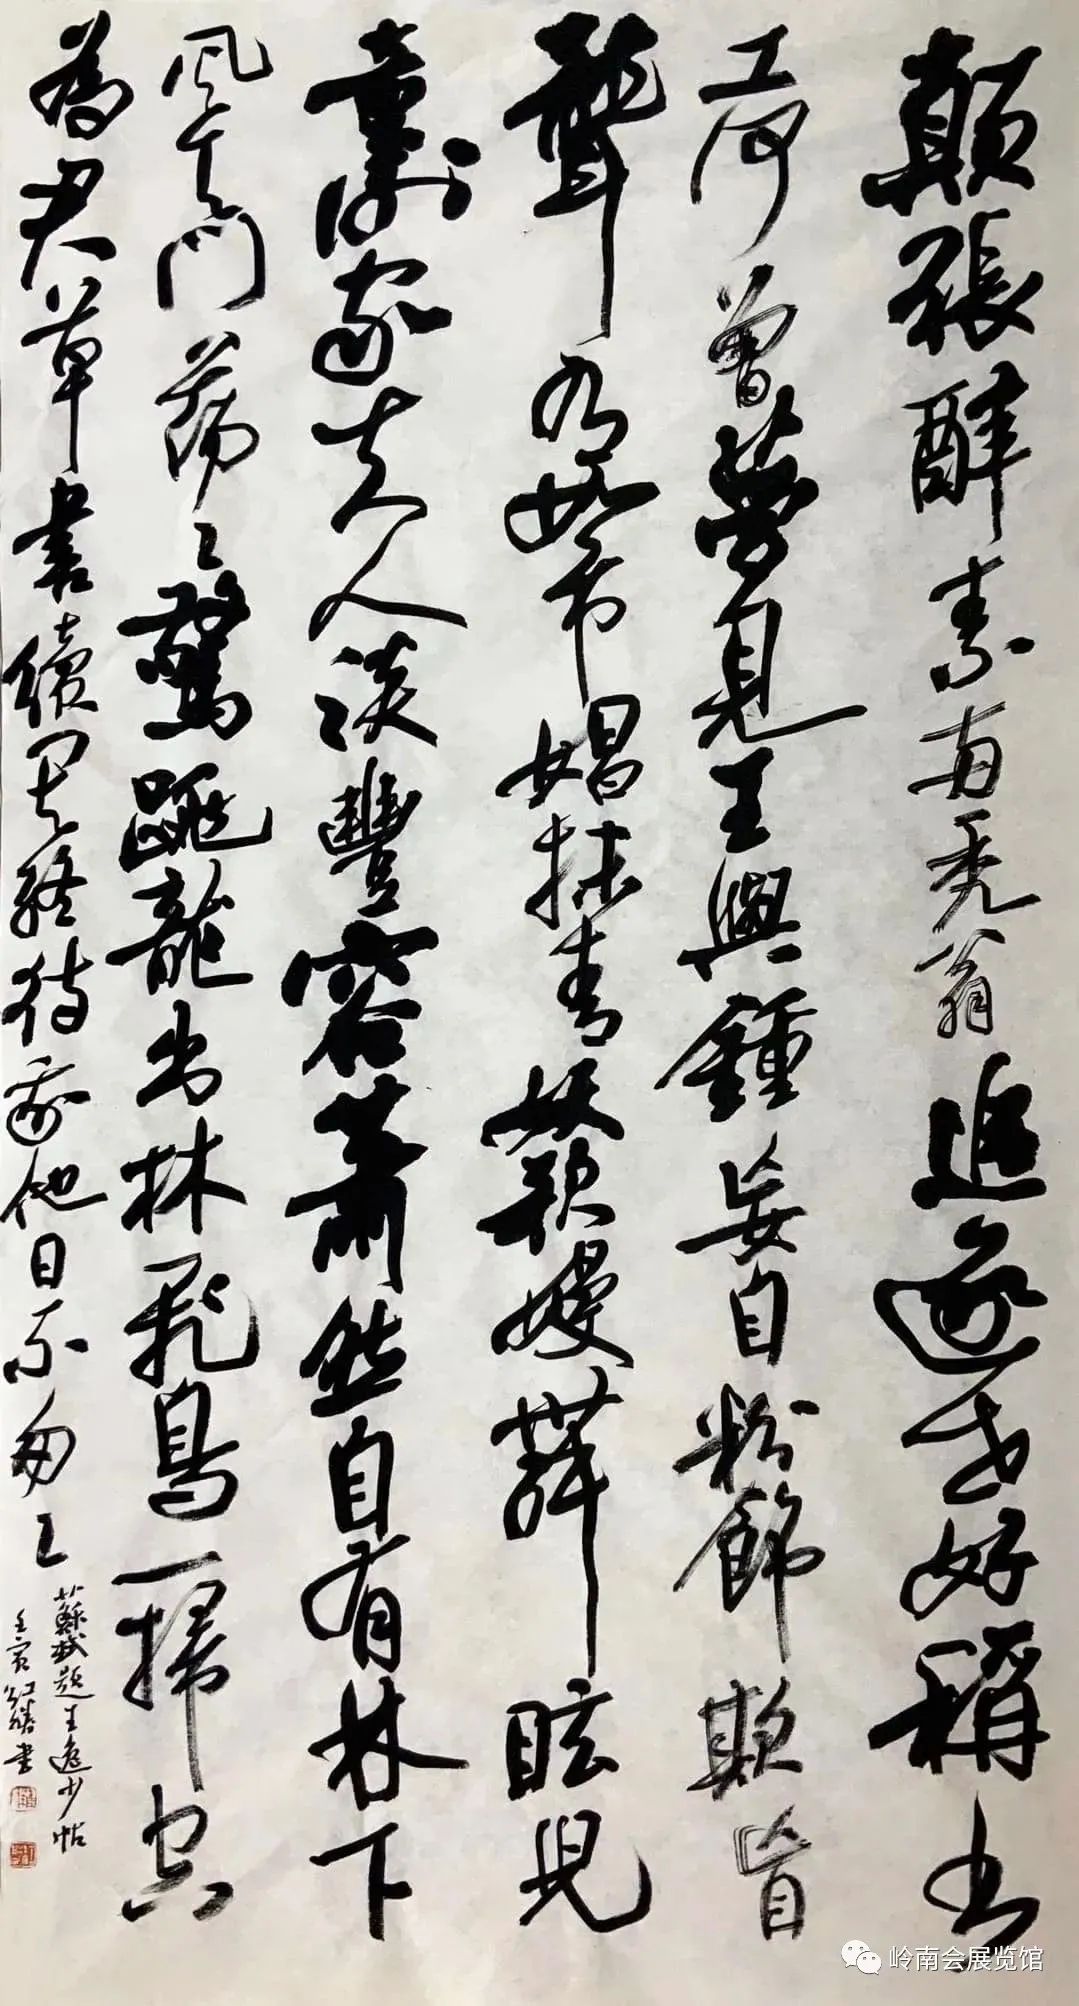 顛張醉素兩禿翁追逐世好稱書
工何曾夢見王與鍾妄自粉飾欺盲
聾有如市娼抹青紅妖歌嫚舞眩兒
童謝家夫人淡豐容蕭然自有林下
風天門蕩〻驚跳龍出林飛鳥一掃空
為君草書續其終待我他日不匆〻
蘇軾題王逸少帖
壬寅 書
岭南会展览馆